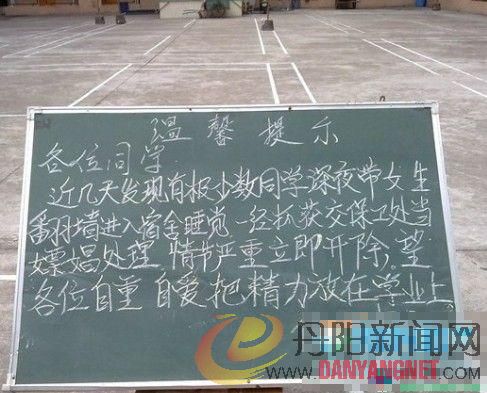 温馨提示
各位同学
近几天发现有极少数同学深夜带女生
翻墙进入宿舍睡觉 一经抓获交保卫处当
嫖娼处理 情节严重立即开除。望
各位自重 自爱把精力放在学业上
丹阳新闻网
WWW.DANYANGNET.COM